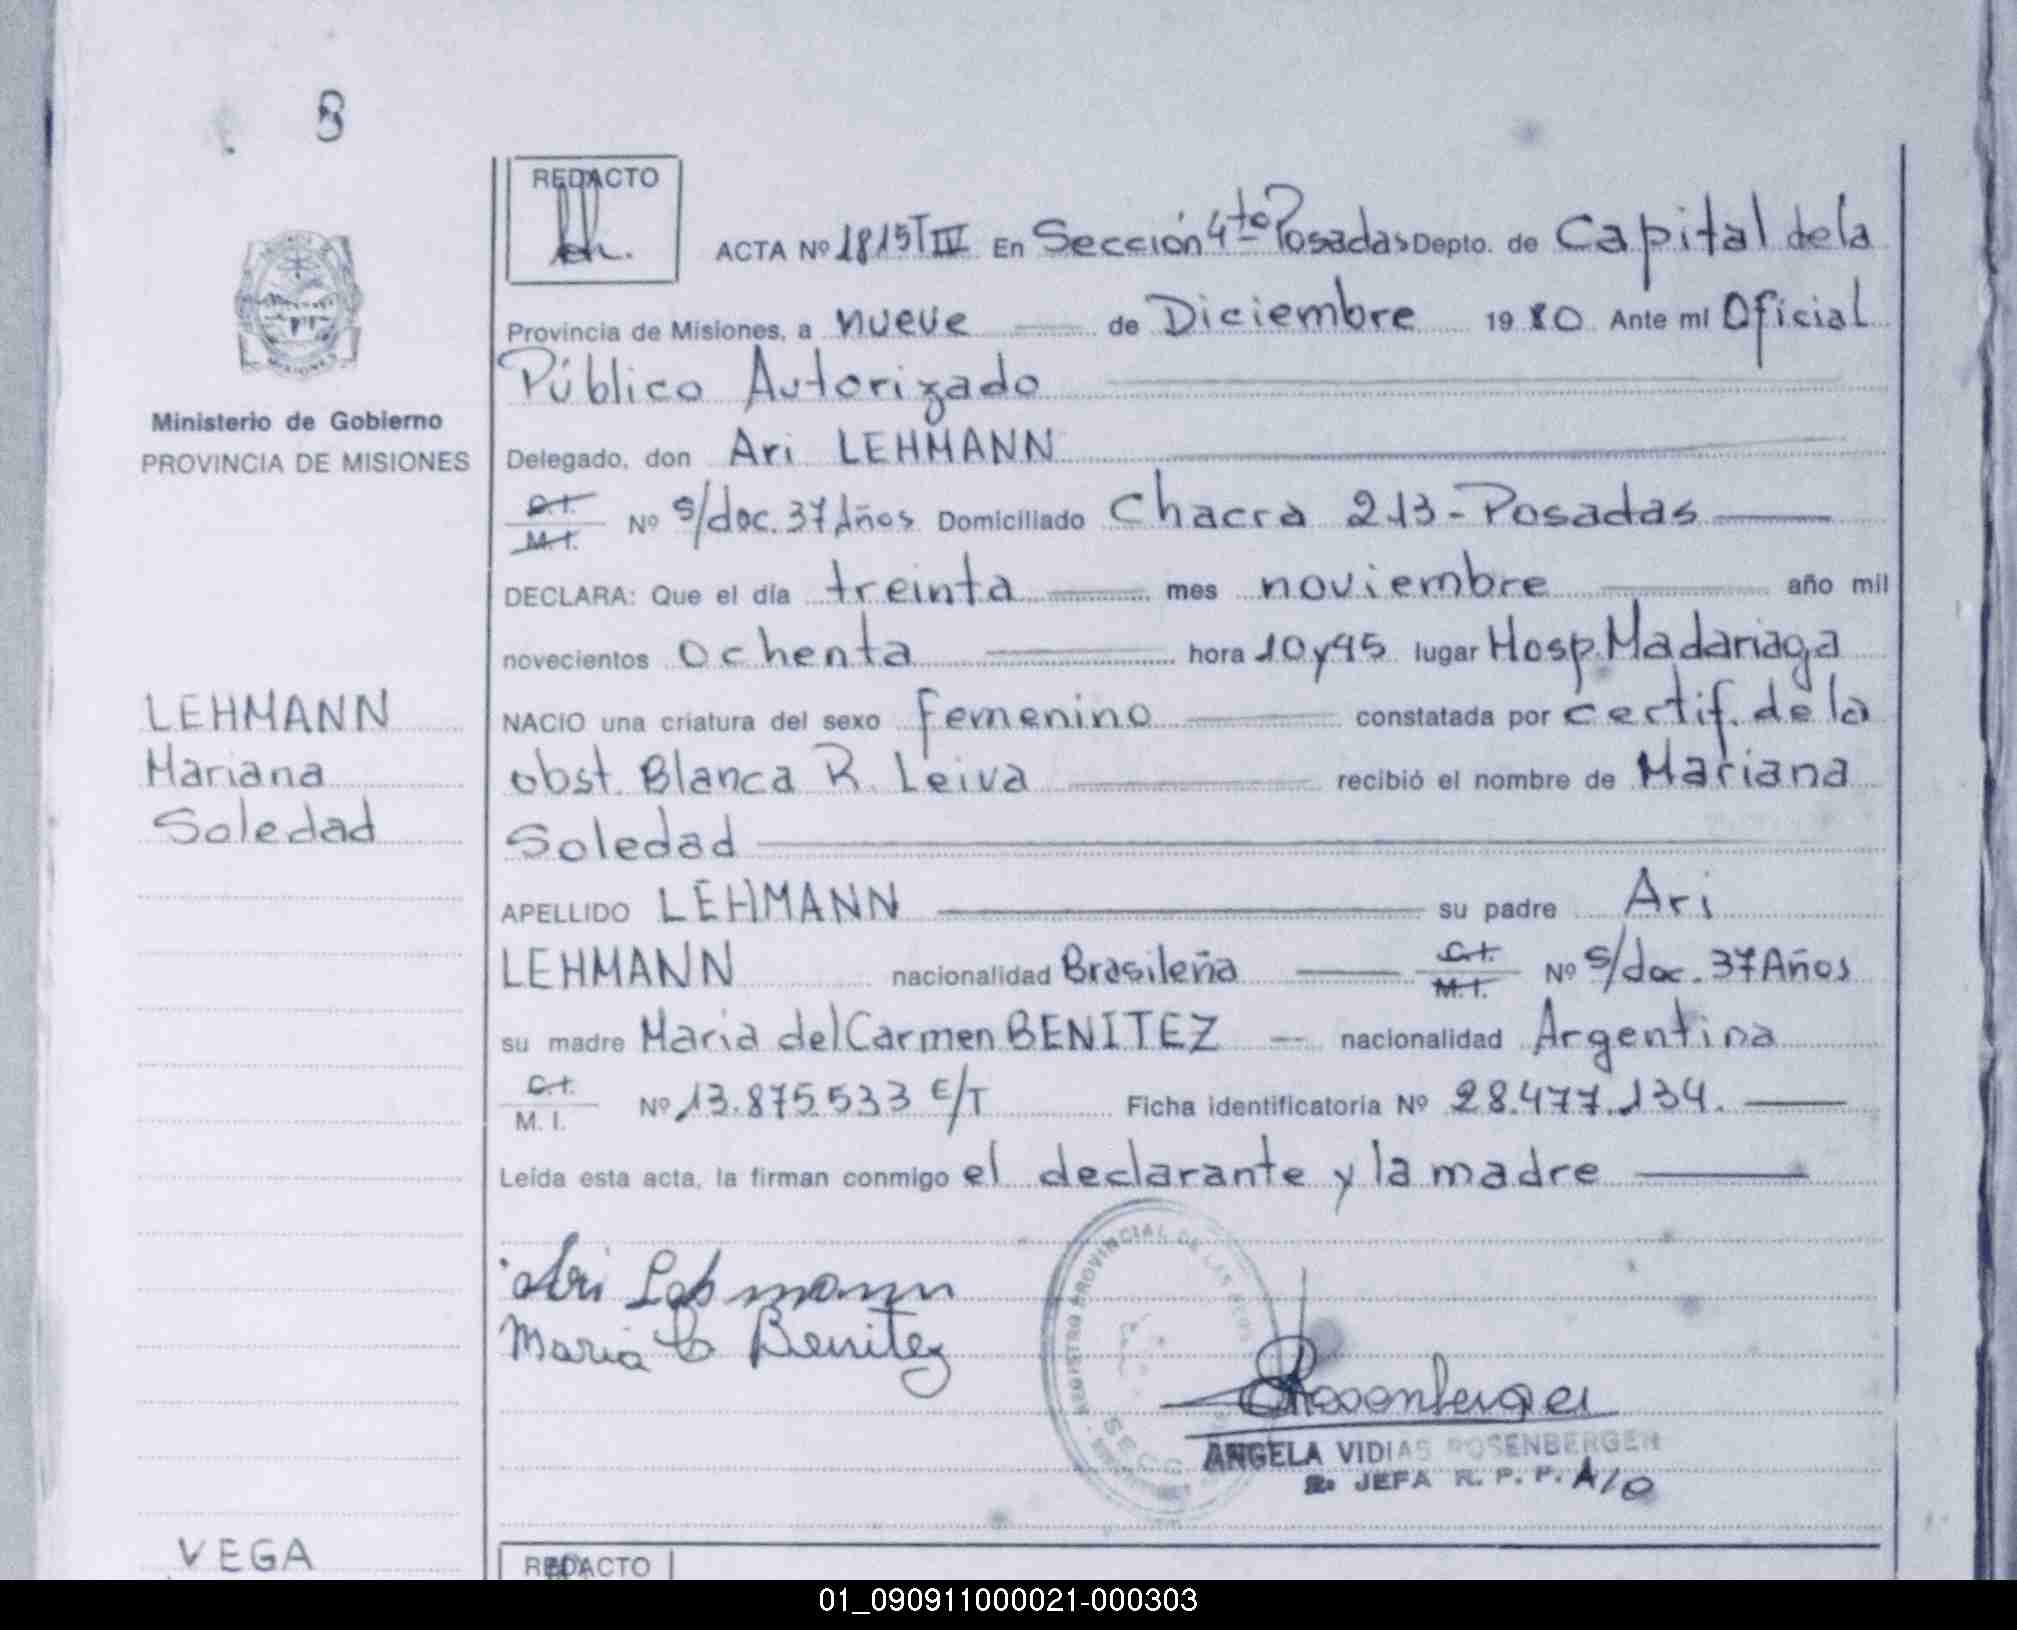 8
REDACTO
ACTA Nº 1815 T IV En Sección 4ta Posadas Depto. de Capital de la
Provincia de Misiones, a nueve de Diciembre 1980 Ante mí Oficial
Público Autorizado
Ministerio de Gobierno
PROVINCIA DE MISIONES
Delegado, don Ari LEHMANN
C.I.
M.I. Nº s/doc. 37 Años Domiciliado Chacra 213 - Posadas
DECLARA: Que el día treinta mes noviembre año mil
novecientos ochenta hora 10 y 45 lugar Hosp. Madariaga
LEHMANN
Mariana
Soledad
NACIO una criatura del sexo femenino constatada por certif. de la
obst. Blanca R. Leiva recibió el nombre de Mariana
Soledad
APELLIDO LEHMANN su padre Ari
LEHMANN nacionalidad Brasileña C.I. M.I. Nº s/doc. 37 Años
su madre Maria del Carmen BENITEZ nacionalidad Argentina
C.I.
M.I. Nº 13.875.533 E/T Ficha identificatoria Nº 28.477.134.
Leída esta acta, la firman conmigo el declarante y la madre
Ari Lehmann
Maria C Benitez
REGISTRO PROVINCIAL DE LAS
SECC
Rosenberger
ANGELA VIDIAS ROSENBERGER
JEFA R. P. P. A/C
VEGA
REDACTO
01_090911000021-000303